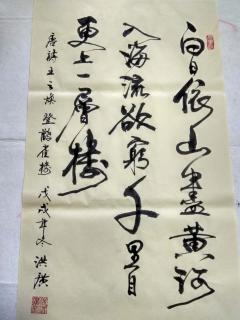 白日依山盡黃河
入海流欲窮千里目
更上一層樓
唐詩王之渙登鸛雀樓戊戌年冬洪廣